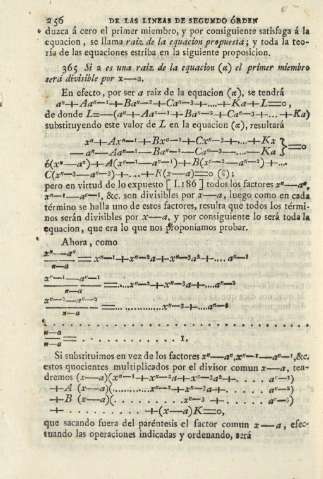 256 DE LAS LINEAS DE SEGUNDO ÓRDEN
duzca á cero el primer miembro, y por consiguiente satisfaga á la
equacion, se llama raiz de la equacion propuesta; y toda la teo-
ría de las equaciones estriba en la siguiente proposicion.
365 Si a es una raiz de la equacion (α) el primer miembro
será divisible por x—a,
En efecto, por ser a raiz de la equacion (α), se tendrá
aⁿ+Aaⁿ⁻¹+Baⁿ⁻²+Caⁿ⁻³+....+Ka+L=0,
de donde L=—(aⁿ+Aaⁿ⁻¹+Baⁿ⁻²+Caⁿ⁻³+...+Ka)
substituyendo este valor de L en la equacion (α), resultará
xⁿ+Axⁿ⁻¹+Bxⁿ⁻²+Cxⁿ⁻³+....+Kx
—aⁿ—Aaⁿ⁻¹—Baⁿ⁻²—Caⁿ⁻³—....—Ka }=0
ó(xⁿ—aⁿ)+A(xⁿ⁻¹—aⁿ⁻¹)+B(xⁿ⁻²—aⁿ⁻²)+...
C(xⁿ⁻³—aⁿ⁻³)+....+K(x—a)=0 (6);
pero en virtud de lo expuesto [I.186] todos los factores xⁿ—aⁿ,
xⁿ⁻¹—aⁿ⁻¹, &c. son divisibles por x—a, luego como en cada
término se halla uno de estos factores, resulta que todos los térmi-
nos serán divisibles por x—a, y por consiguiente lo será toda la
equacion, que era lo que nos proponiamos probar.
Ahora, como
xⁿ—aⁿ
x—a =xⁿ⁻¹+xⁿ⁻²a+xⁿ⁻³a²+....aⁿ⁻¹
xⁿ⁻¹—aⁿ⁻¹
x—a =......xⁿ⁻²+xⁿ⁻³a+....aⁿ⁻²
xⁿ⁻²—aⁿ⁻²
x—a =..............xⁿ⁻³+....aⁿ⁻³
x—a
x—a = 1.
Si substituimos en vez de los factores xⁿ—aⁿ, xⁿ⁻¹—aⁿ⁻¹, &c.
estos quocientes multiplicados por el divisor comun x—a, ten-
dremos (x—a)(xⁿ⁻¹+xⁿ⁻²a+xⁿ⁻³a²+. . . . aⁿ⁻¹)
+A (x—a)(..........xⁿ⁻²+xⁿ⁻³a+. . . . aⁿ⁻²)
+B (x—a)(. . . . . . . . . xⁿ⁻³ +. . . . aⁿ⁻³)
+ . . . . . . . . . +(x—a)K=0,
que sacando fuera del paréntesis el factor comun x—a, efec-
tuando las operaciones indicadas y ordenando, será